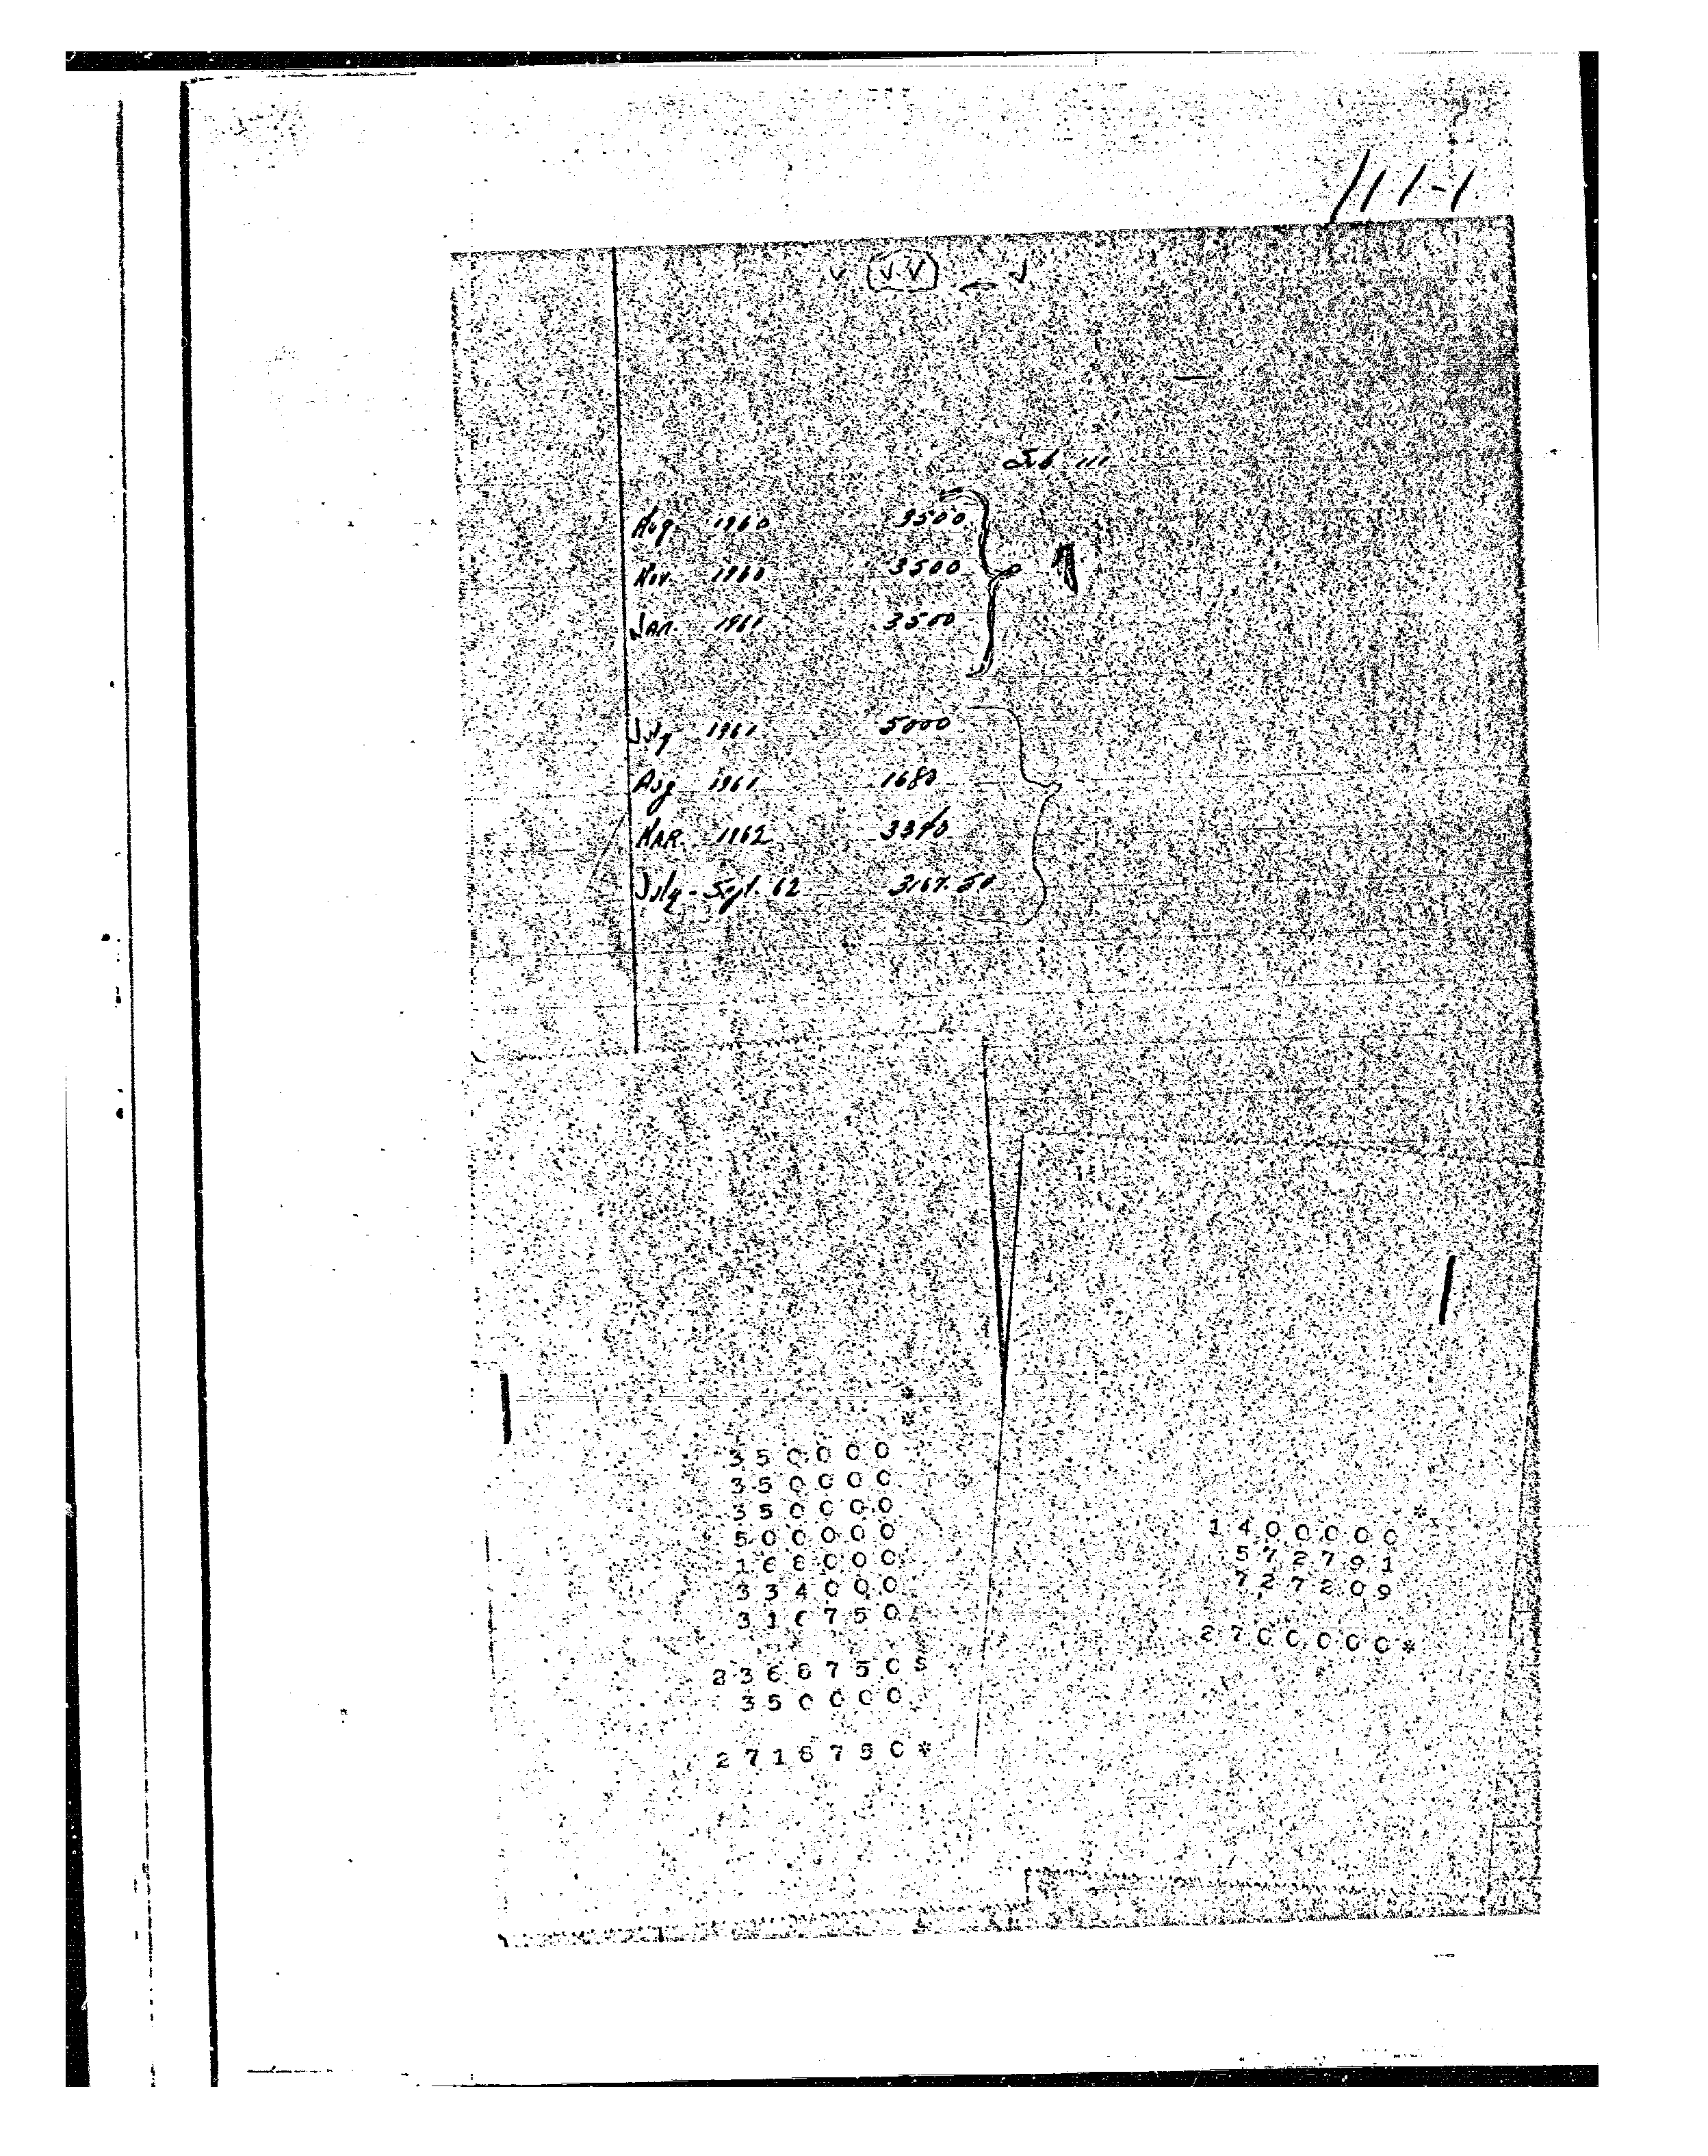 111-1
v V.V v
Sub 111
Aug. 1960 3500
Nov. 1960 3500
Jan. 1961 3500
July 1961 5000
Aug 1961 1680
MAR. 1962 3340
July - Sept. 62 3167.50
*
350000
350000
350000
500000
168000
334000
316750
2368750S
350000
2718750*
*
1400000
572791
727209
2700000*